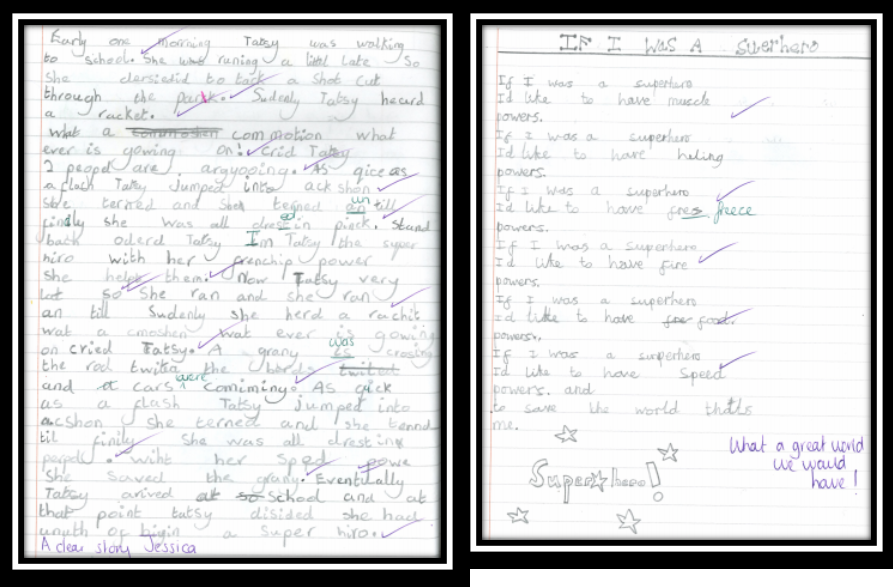 Early one morning Tatsy was walking
to school. She was runing a littl late So
she dersiedid to tack a Shot cut
through the park. Sudenly Tatsy heard
a racket.
What a commoshen commotion what
ever is gowing on! Crid Tatsy
2 peopel are argayooing. As qice as
a flash Tatsy Jumped into ackshon
She terned and She terned an un till
finely she was all drest ed in pinck. Stand
back oderd Tatsy Im Tatsy the super
hiro with her frenchip power
She helps them. Now Tatsy very
Lat so She ran and she ran
an till Sudenly she herd a rachit
wat a cmoshen wat ever is gowing
on cried Tatsy. A grany is was crosing
the rod twita the bords twitet
and cars were comiming. As qick
as a flash Tatsy jumped into
acshon she terned and she ternd
til finily She was all drest in
. wiht her Sped powe
She Saved the grany. Eventiually
Tatsy arived at so School and at
that point tatsy disided she had
of bigin a Super hiro.
A clear story Jessica
IF I WAS A SUERHERO
If I was a superhero
I'd like to have muscle
powers.
If I was a superhero
I'd like to have heling
powers.
If I was a superhero
I'd like to have fres freece
powers.
If I was a superhero
I'd like to have fire
powers.
If I was a superhero
I'd like to have food.
powers.
If I was a superhero
I'd like to have Speed
powers. and
to save the world thats
me.
Superhero!
What a great world
we would
have!